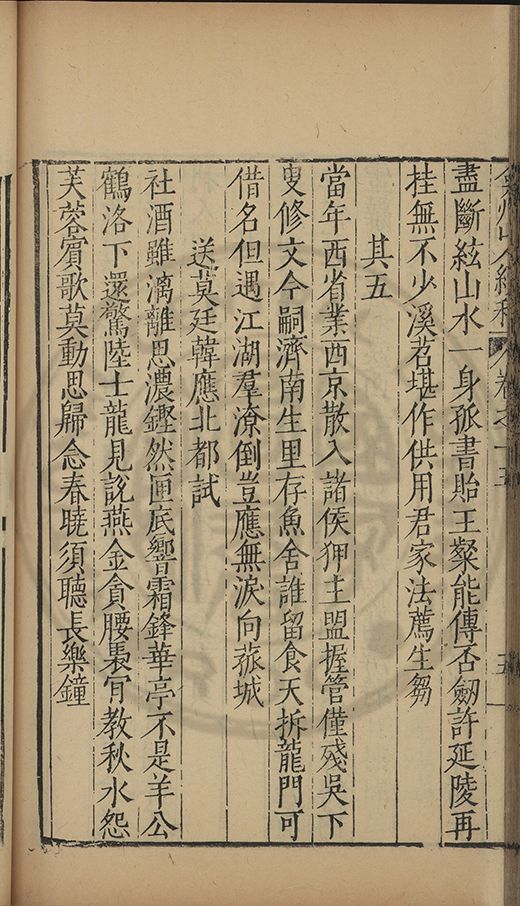 卷之十五
五
盡斷絃山水一身孤書貽王粲能傳否劒許延陵再
挂無不少溪茗堪作供用君家法薦生芻
其五
當年西省業西京散入諸侯狎主盟握管僅殘吳下
叟修文今嗣濟南生里存魚舍誰留食天拆龍門可
借名但遇江湖羣潦倒豈應無淚向菰城
送莫廷韓應北都試
社酒雖漓離思濃鏗然匣底響霜鋒華亭不是羊公
鶴洛下還驚陸士龍見說燕金貪腰褭宵教秋水怨
芙蓉賓歌莫動思歸念春曉須聽長樂鐘